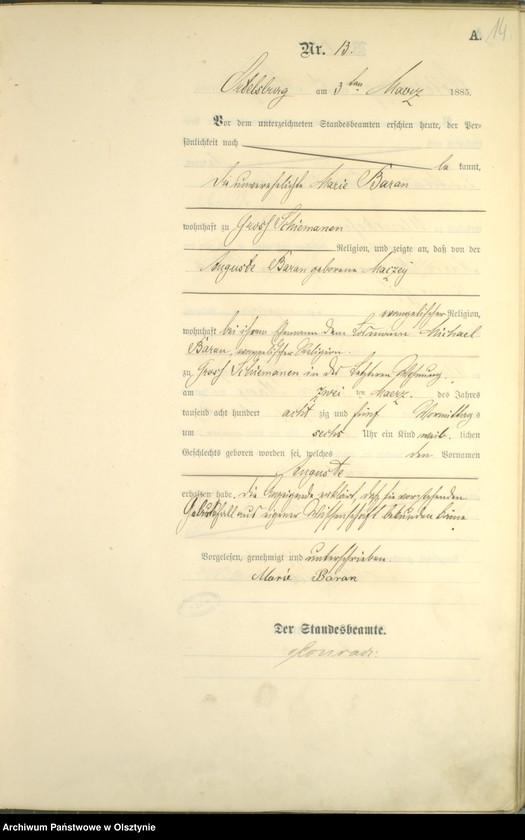 A. 14
Nr. 13.
am 3ten Maerz 1885.
Vor dem unterzeichneten Standesbeamten erschien heute, der Per-
sönlichkeit nach
be kannt,
die unverehelichte Marie Baran
wohnhaft zu Groß Schiemanen
Religion, und zeigte an, daß von der
Auguste Baran geborene
evangelischer Religion,
wohnhaft bei ihrem Ehemann dem Losmann Michael
Baran, evangelischer Religion
zu Groß Schiemanen in der Letzteren Wohnung
am zwei ten Maerz des Jahres
tausend acht hundert acht zig und fünf Vormittags
um sechs Uhr ein Kind weib lichen
Geschlechts geboren worden sei, welches den Vornamen
Auguste
erhalten habe. Die Anzeigende erklärt, daß sie vorstehenden
Geburtsfall aus eigener Wissenschaft bekunden könne
Vorgelesen, genehmigt und unterschrieben
Marie Baran
Der Standesbeamte.
Archiwum Państwowe w Olsztynie